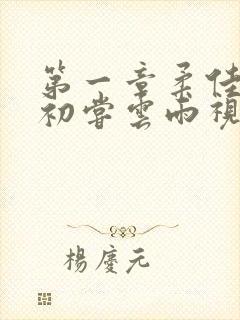 第一章柔佳
初嘗雲雨視
楊慶元